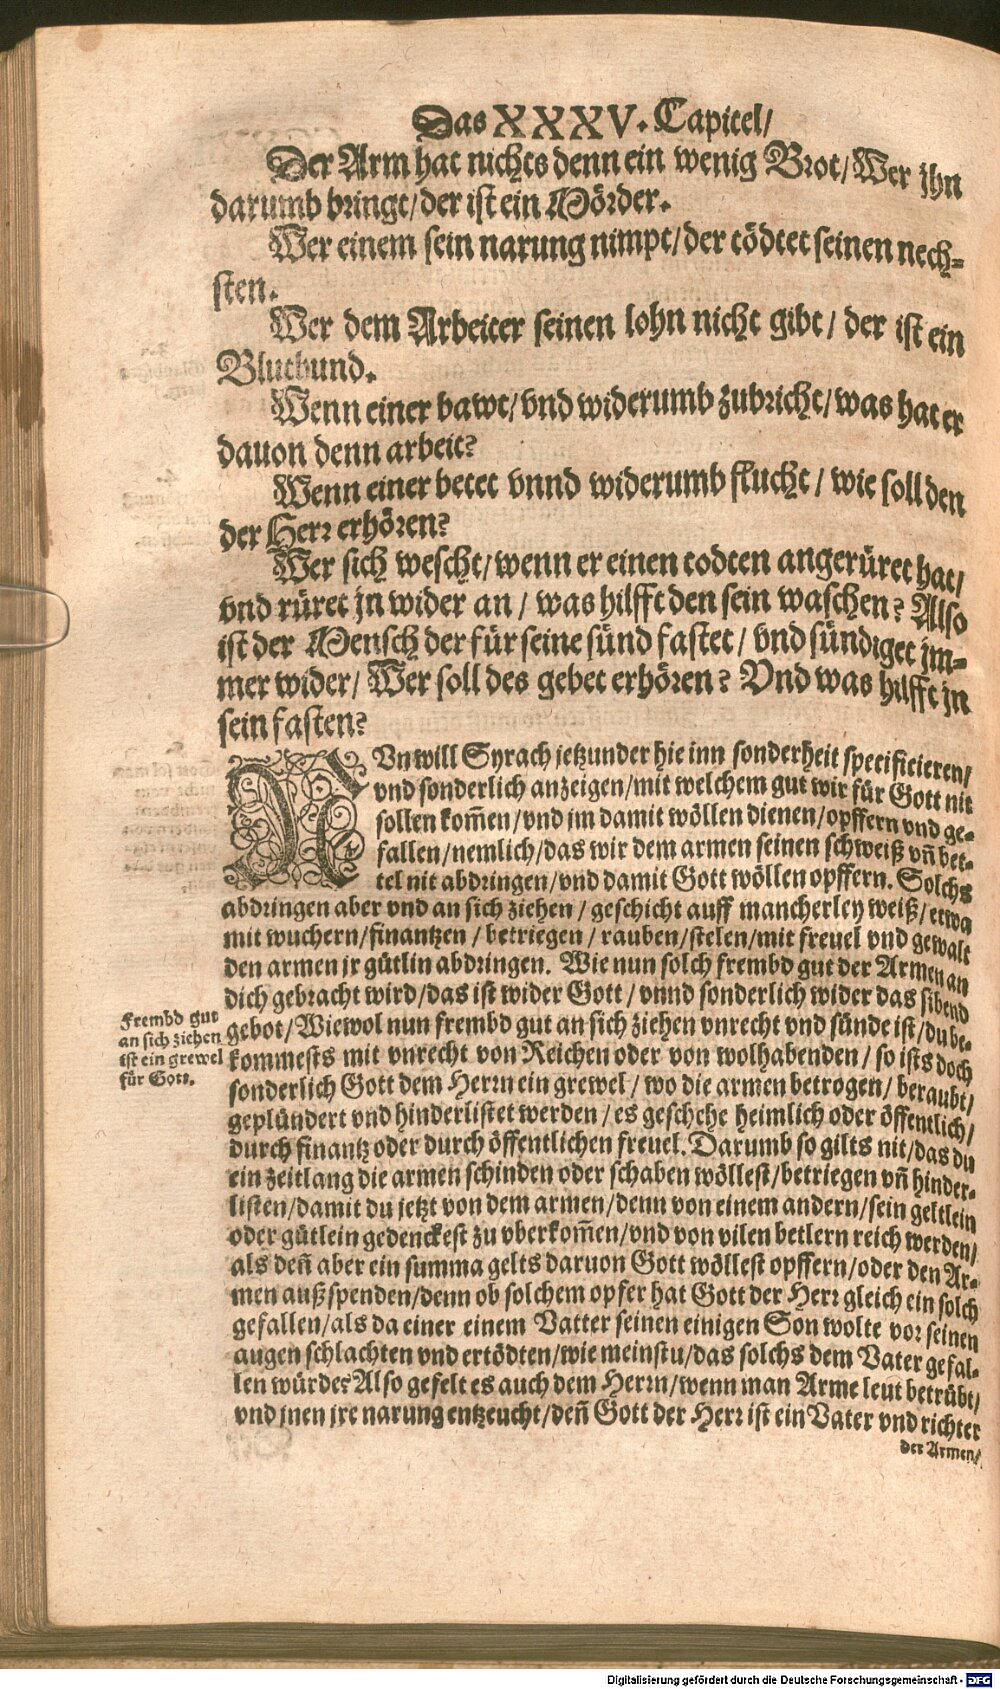 Das XXXV. Capitel/
Der Arm hat nichts denn ein wenig Brot/ Wer jhn
darumb bringt/ der ist ein Mörder.
Wer einem sein narung nimpt/ der tödtet seinen nech-
sten.
Wer dem Arbeiter seinen lohn nicht gibt/ der ist ein
Bluthund.
Wenn einer bawt/ vnd widerumb zubricht/ was hat er
dauon denn arbeit?
Wenn einer betet vnnd widerumb flucht/ wie soll den
der Herr erhören?
Wer sich wescht/ wenn er einen todten angerüret hat/
vnd rüret jn wider an/ was hilfft den sein waschen? Also
ist der Mensch der für seine sünd fastet/ vnd sündiget jm-
mer wider/ Wer soll des gebet erhören? Vnd was hilfft jn
sein fasten?
NVn will Syrach jetzunder hie inn sonderheit specificieren/
vnd sonderlich anzeigen/ mit welchem gut wir für Gott nit
sollen kom̃en/ vnd jm damit wöllen dienen/ opffern vnd ge-
fallen/ nemlich/ das wir dem armen seinen schweiß vñ bet-
tel nit abdringen/ vnd damit Gott wöllen opffern. Solchs
abdringen aber vnd an sich ziehen/ geschicht auff mancherley weiß/ etwa
mit wuchern/ finantzen/ betriegen/ rauben/ stelen/ mit freuel vnd gewalt
den armen jr gütlin abdringen. Wie nun solch frembd gut der Armen an
dich gebracht wird/ das ist wider Gott/ vnnd sonderlich wider das sibend
gebot/ Wiewol nun frembd gut an sich ziehen vnrecht vnd sünde ist/ du be-
kommests mit vnrecht von Reichen oder von wolhabenden/ so ists doch
sonderlich Gott dem Herrn ein grewel/ wo die armen betrogen/ beraubt/
geplündert vnd hinderlistet werden/ es geschehe heimlich oder öffentlich/
durch finantz oder durch öffentlichen freuel. Darumb so gilts nit/ das du
ein zeitlang die armen schinden oder schaben wöllest/ betriegen vñ hinder-
listen/ damit du jetzt von dem armen/ denn von einem andern/ sein geltlein
oder gütlein gedenckest zu vberkom̃en/ vnd von vilen betlern reich werden/
als deñ aber ein summa gelts daruon Gott wöllest opffern/ oder den Ar-
men außspenden/ denn ob solchem opfer hat Gott der Herr gleich ein solch
gefallen/ als da einer einem Vatter seinen einigen Son wolte vor seinen
augen schlachten vnd ertödten/ wie meinstu/ das solchs dem Vater gefal-
len würde? Also gefelt es auch dem Herrn/ wenn man Arme leut betrübt/
vnd jnen jre narung entzeucht/ deñ Gott der Herr ist ein Vater vnd richter
der Armen/
Frembd gut
an sich ziehen
ist ein grewel
für Gott.
Digitalisierung gefördert durch die Deutsche Forschungsgemeinschaft - DFG